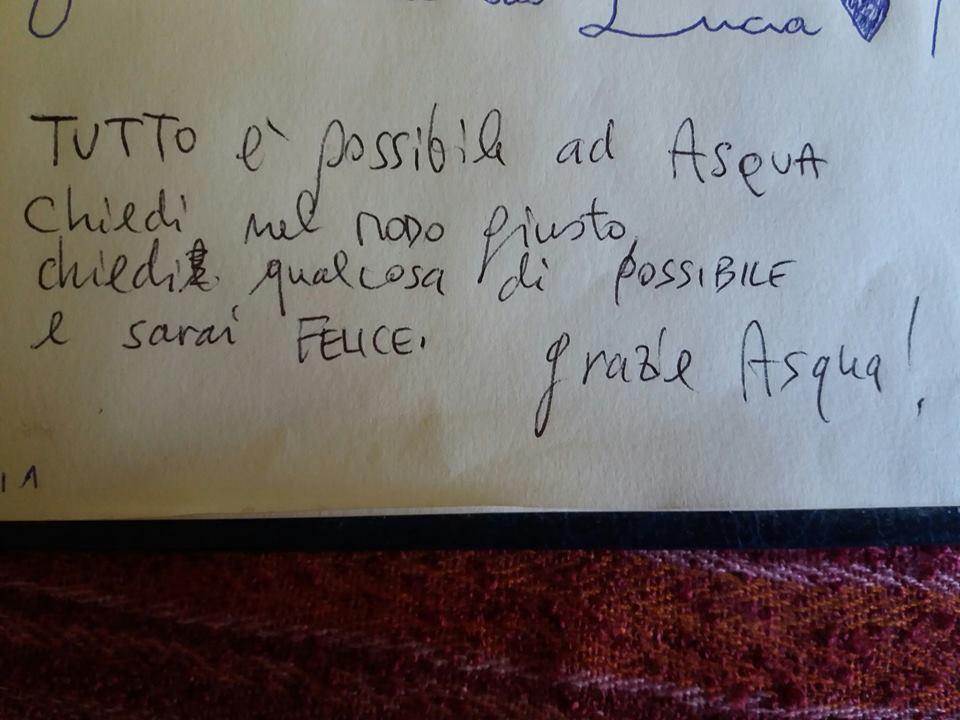 Lucia
TUTTO è possibile ad ASQUA
Chiedi nel MODO giusto,
chiedi qualcosa di POSSIBILE
e sarai FELICE.
grazie Asqua!